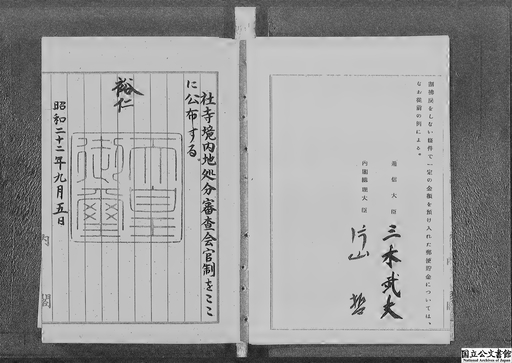 割増戻をしない條件で一定の金額を預け入れた郵便貯金については、
なお從前の例による。
遞信大臣 三木武夫
内閣總理大臣 片山哲
社寺境内地処分審査会官制をここ
に公布する。
裕仁
天皇御璽
昭和二十二年九月五日
内閣
国立公文書館
National Archives of Japan